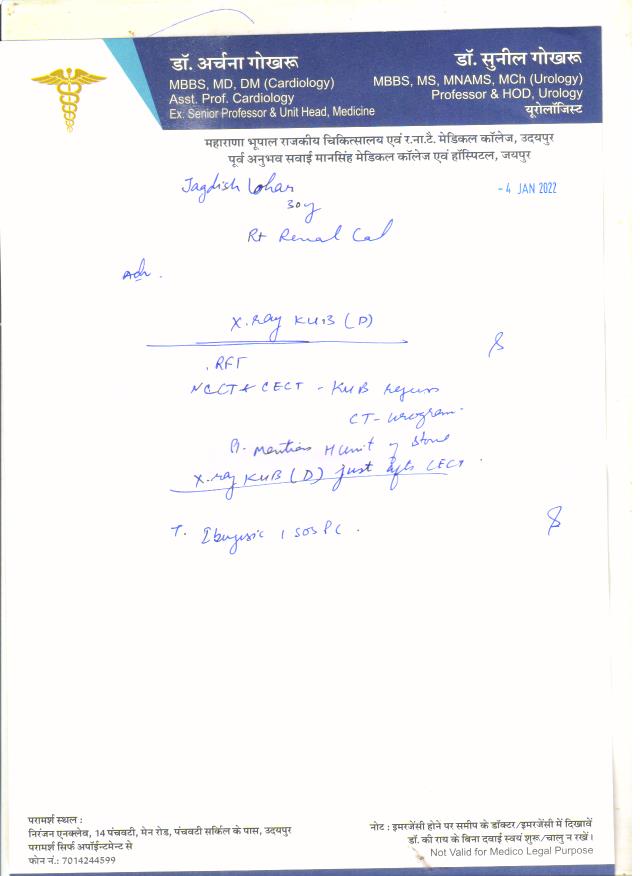 डॉ. अर्चना गोखरू
MBBS, MD, DM (Cardiology)
Asst. Prof. Cardiology
Ex: Senior Professor & Unit Head, Medicine
डॉ. सुनील गोखरू
MBBS, MS, MNAMS, MCh (Urology)
Professor & HOD, Urology
यूरोलॉजिस्ट
महाराणा भूपाल राजकीय चिकित्सालय एवं र.ना.टै. मेडिकल कॉलेज, उदयपुर
पूर्व अनुभव सवाई मानसिंह मेडिकल कॉलेज एवं हॉस्पिटल, जयपुर
Jagdish Lohar
- 4 JAN 2022
30y
Rt Renal Cal
Adv.
X.ray KUB (D)
. RFT
NCCT + CECT - KUB region
CT- Urogram.
mention H unit of Stone
X.ray KUB (D) just after CECT.
T. Ibugesic 1 SOS PC.
परामर्श स्थल :
निरंजन एनक्लेव, 14 पंचवटी, मेन रोड, पंचवटी सर्किल के पास, उदयपुर
परामर्श सिर्फ अपॉईन्टमेन्ट से
फोन नं.: 7014244599
नोट : इमरजेंसी होने पर समीप के डॉक्टर/इमरजेंसी में दिखावें
डॉ. की राय के बिना दवाई स्वयं शुरू/चालु न रखें।
Not Valid for Medico Legal Purpose